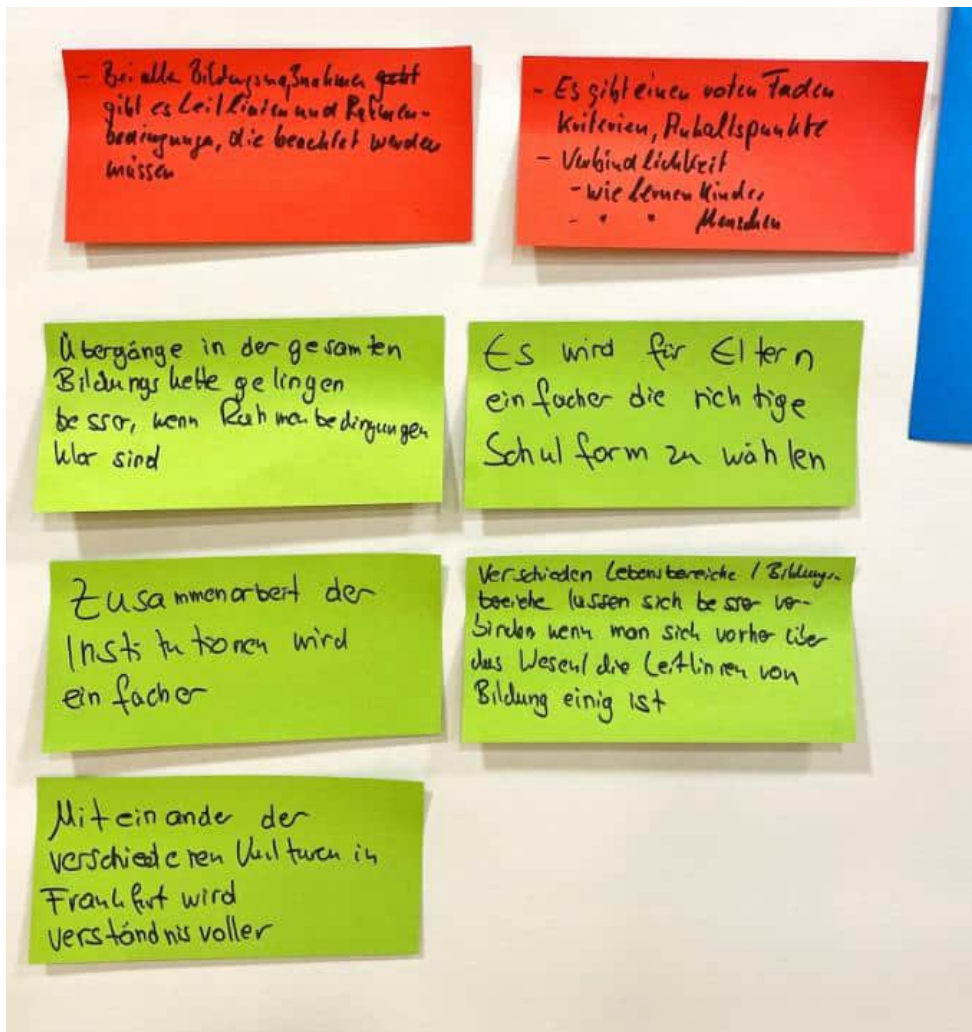 - Bei alle Bildungsmaßnahmen geht
gibt es Leitlinien und Rahmen-
bedingunge, die beachtet werden
müssen
- Es gibt einen roten Faden
Kriterien, Anhaltspunkte
- Verbindlichkeit
- wie lernen Kinder
- " " Menschen
Übergänge in der gesamten
Bildungskette gelingen
besser, wenn Rahmenbedingungen
klar sind
Es wird für Eltern
einfacher die richtige
Schulform zu wählen
Zusammenarbeit der
Institutionen wird
einfacher
Verschieden Lebensbereiche / Bildungs-
bereiche lassen sich besser ver-
binden wenn man sich vorher über
das Wesen/die Leitlinien von
Bildung einig ist
Miteinander der
verschiedenen Kulturen in
Frankfurt wird
verständnisvoller